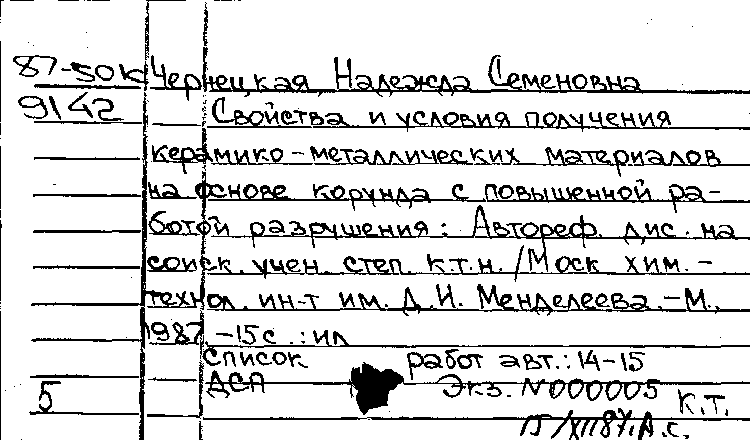 87-50к Чернецкая, Надежда Семеновна
9142 Свойства и условия получения
керамико-металлических материалов
на основе корунда с повышенной ра-
ботой разрушения: Автореф. дис. на
соиск. учен. степ. к.т.н. / Моск. хим.-
технол. ин-т им. Д.И. Менделеева.-М.,
1987.-15с.:ил
Список работ авт.: 14-15
ДСП Экз. N000005
5 к.т.
15/XII87. А.с.